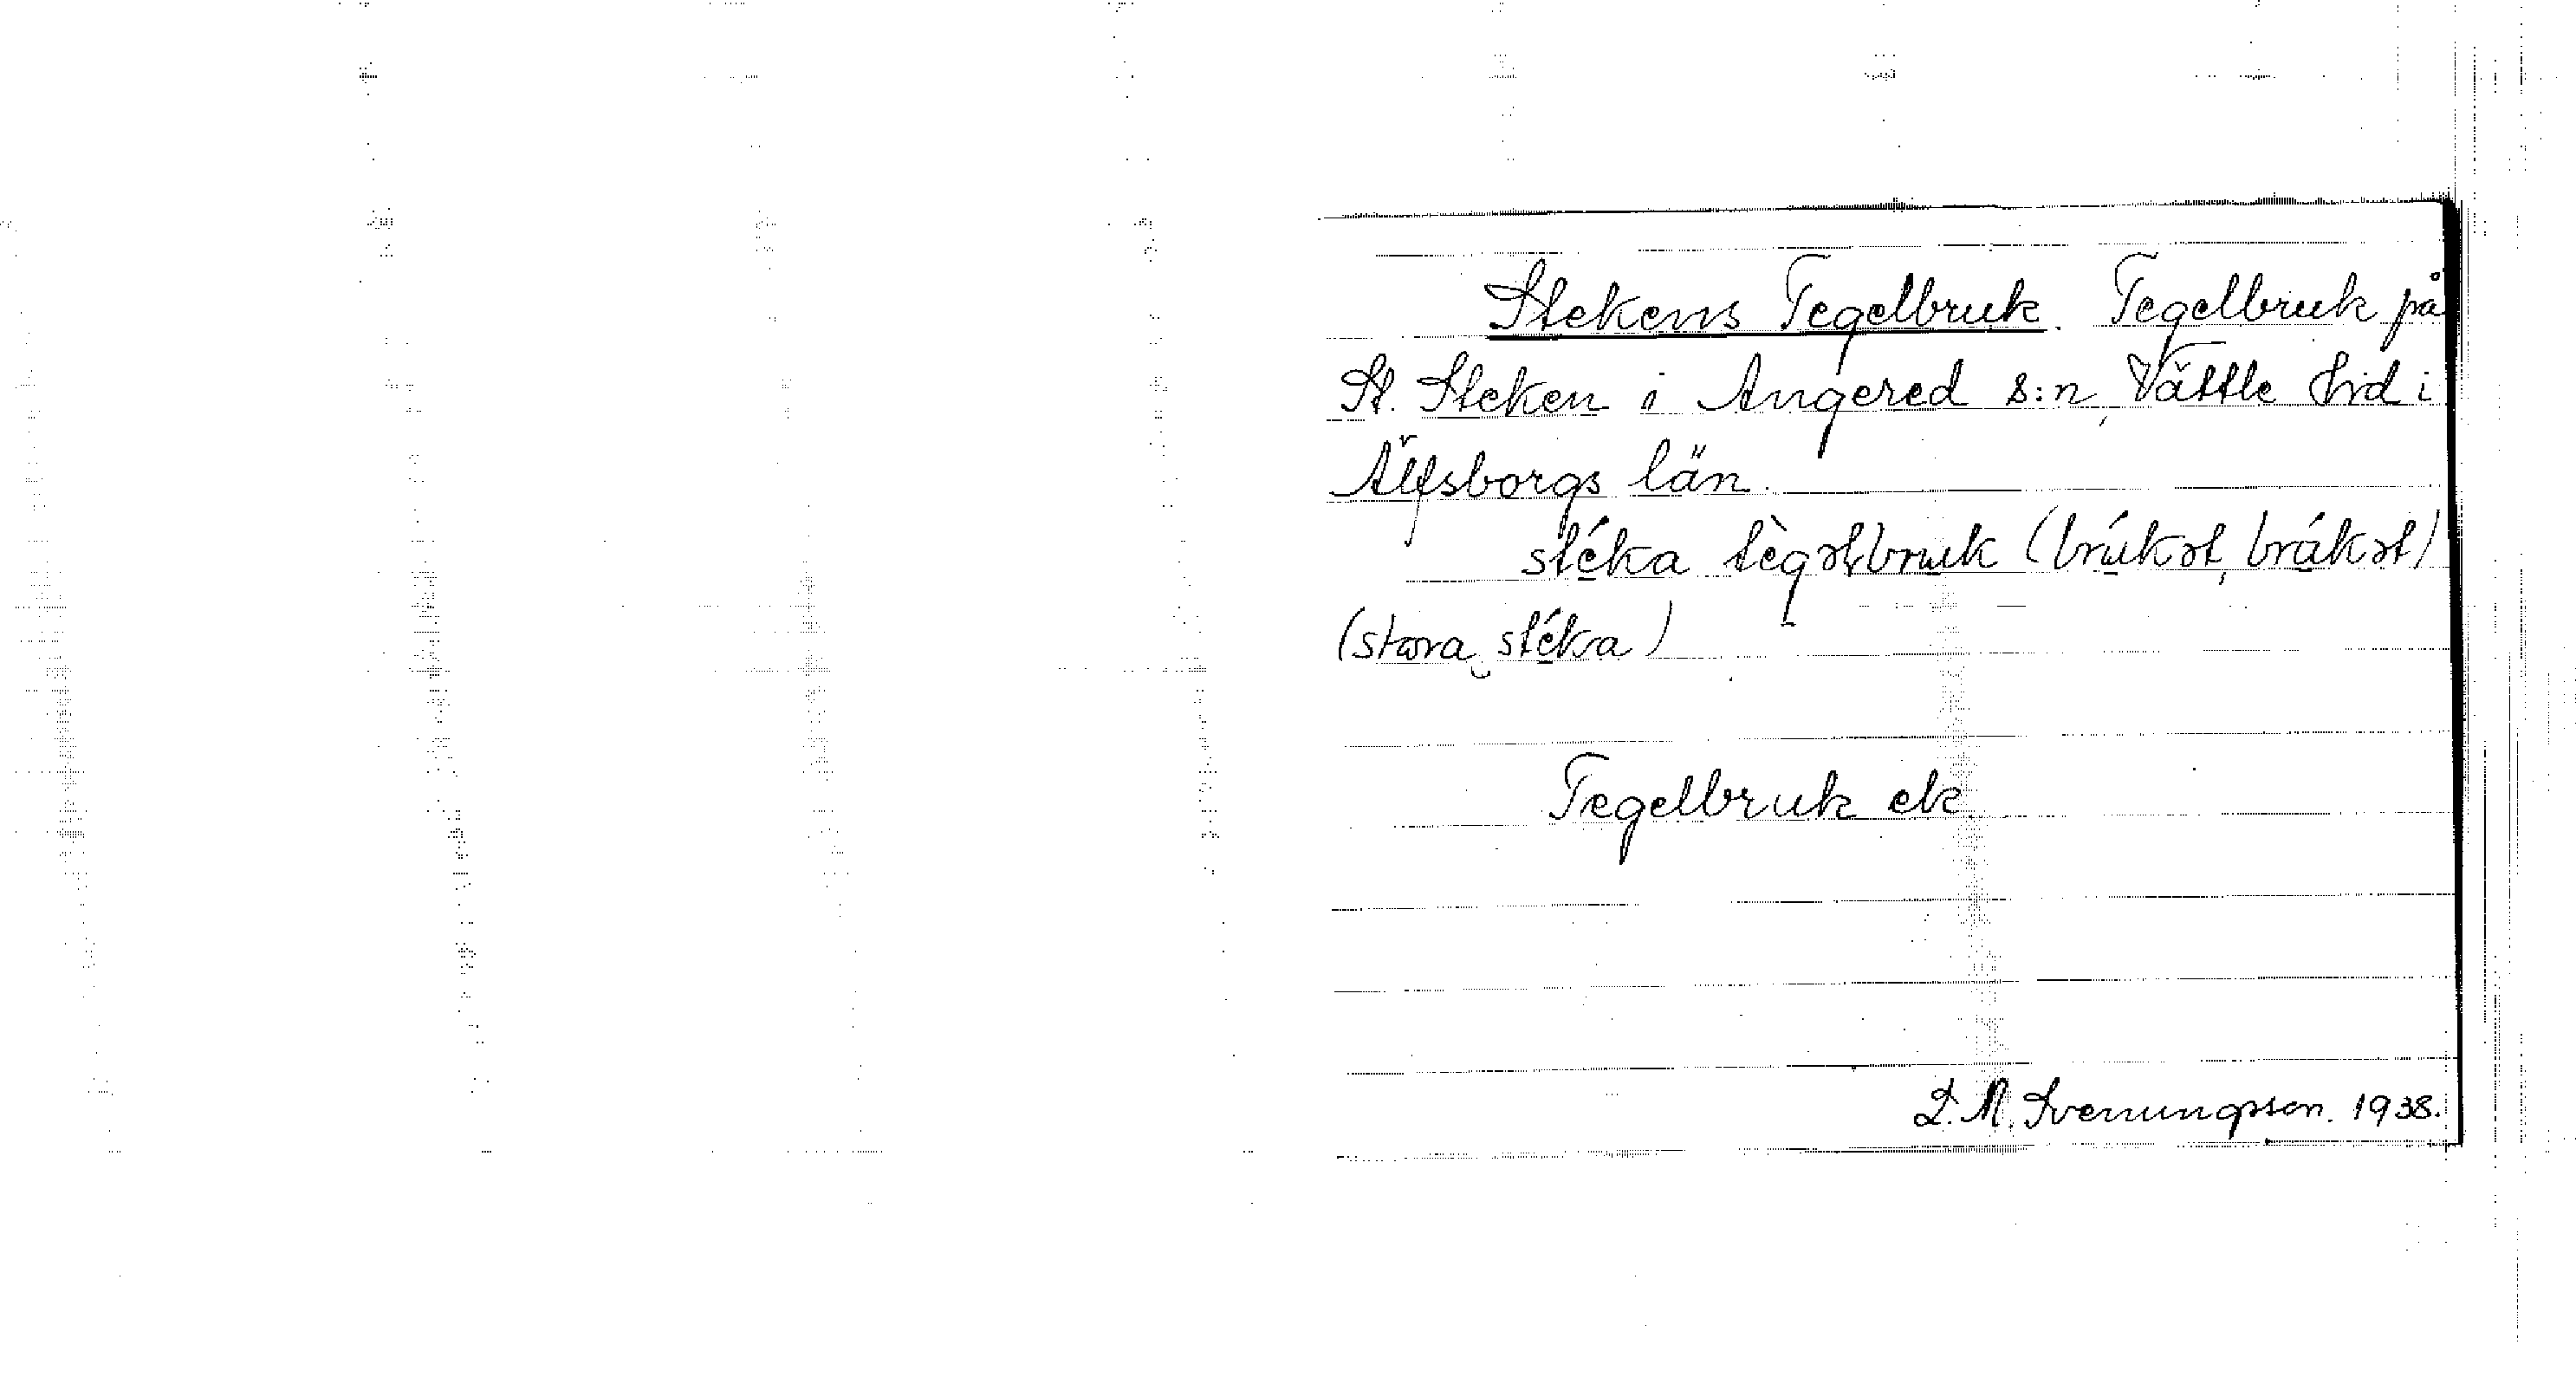 Stekens Tegelbruk. Tegelbruk på
St. Steken i Angered s:n, Vättle hrd i
Älfsborgs län.
stéka tègəlbruk (brúkət, brúkət)
(stora stéka)
Tegelbruk ek.
S. M. Svenungsson. 1938.